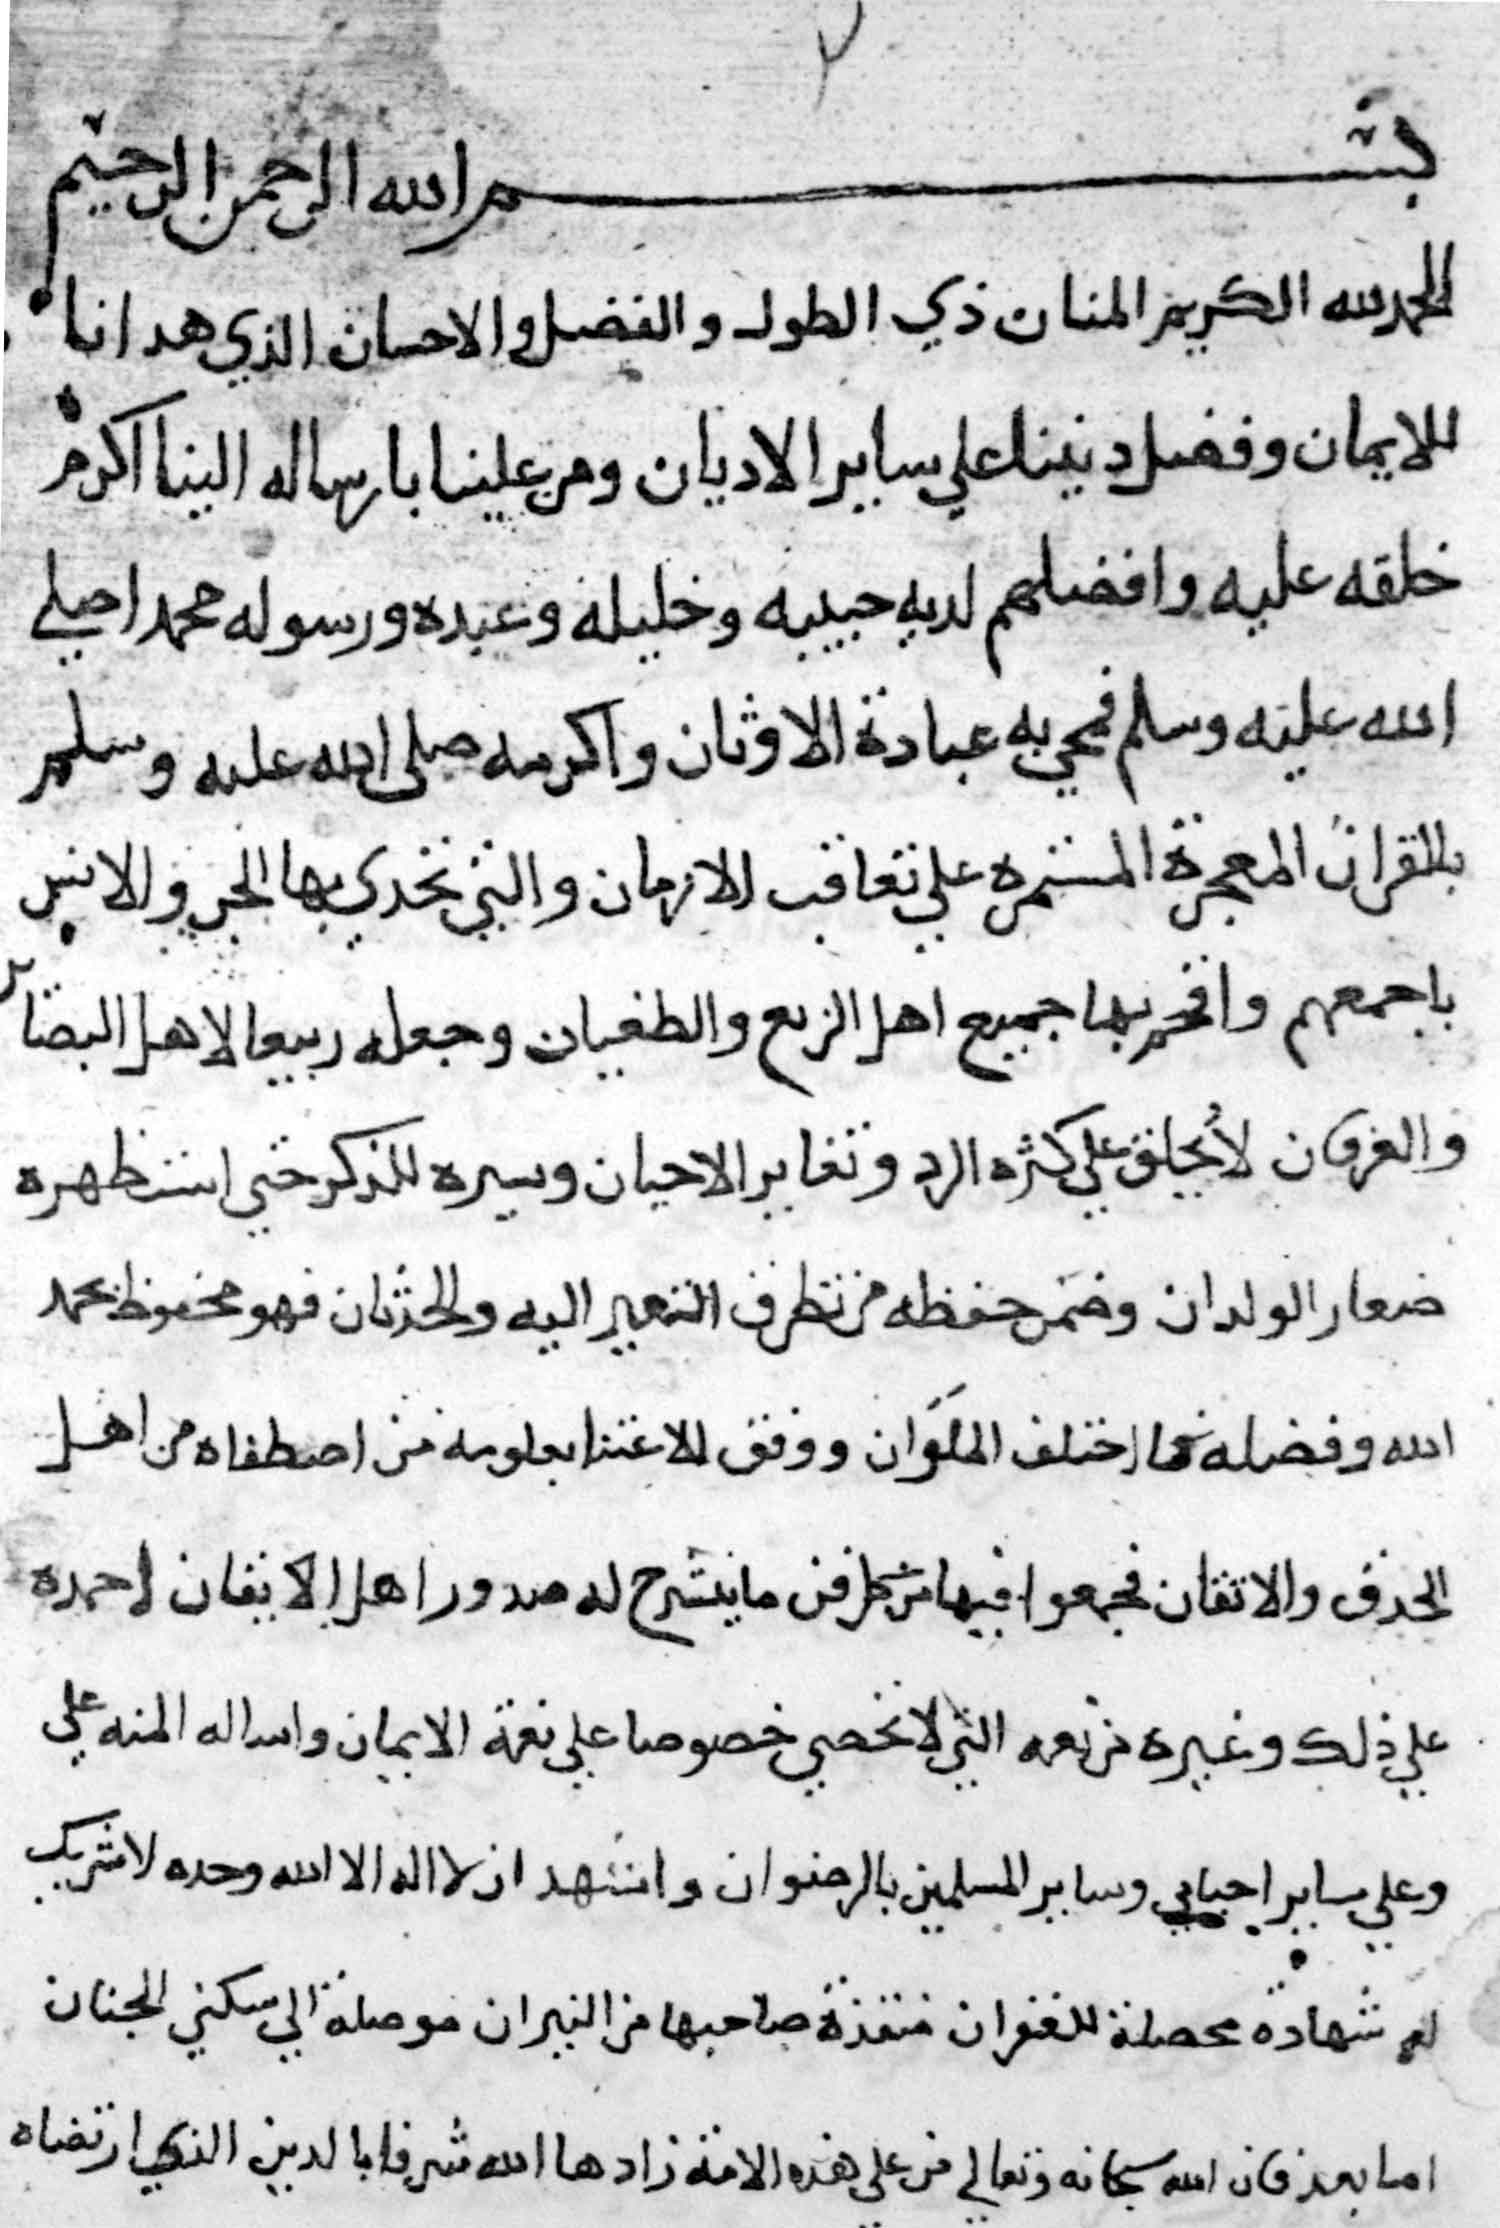 ٢
بسم الله الرحمن الرحيم
الحمد لله الكريم المنان ذي الطول والفضل والاحسان الذي هدانا
للايمان وفضل ديننا علي ساير الاديان ومن علينا بارساله الينا اكرم
خلقه عليه وافضلهم لديه حبيبه وخليله وعبده ورسوله محمدا صلي
الله عليه وسلم فمحي به عبادة الاوثان واكرمه صلى الله عليه وسلم
بالقران المعجزة المستمرة علي تعاقب الازمان والتي تحدي بها الجن والانس
باجمعهم وافحم بها جميع اهل الزيع والطغيان وجعله ربيعا لاهل البصاير
والعرفان لا يخلق علي كثره الرد وتغاير الاحيان ويسره للذكر حتي استظهره
صغار الولدان وضمن حفظه من تطرف التغيير اليه والحدثان فهو محفوظ بحمد
الله وفضله ما اختلف الملوان ووفق للاعتنا بعلومه من اصطفاه من اهل
الحذق والاتقان فجمعوا فيها من كل فن ما ينشرح له صدور اهل الايقان احمده
علي ذلك وغيره من نعمه التي لا تحصي خصوصا علي نعمة الايمان واساله المنه علي
وعلي ساير احبابي وساير المسلمين بالرضوان واشهد ان لا اله الا الله وحده لا شريك
له شهادة محصلة للغفران منقذة صاحبها من النيران موصلة الي سكني الجنان
اما بعد فان الله سبحانه وتعالي من علي هذه الامة زادها الله شرفا بالدين الذي ارتضاه